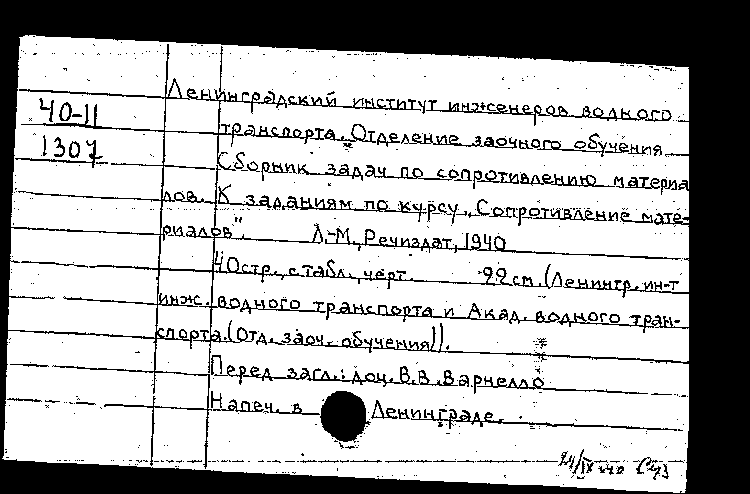 Ленинградский институт инженеров водного
40-11
транспорта. Отделение заочного обучения
1307
Сборник задач по сопротивлению материа
лов. К заданиям по курсу „Сопротивление мате-
риалов". Л.-М., Речиздат, 1940
40стр., с табл., черт. 22см. (Ленингр. ин-т
инж. водного транспорта и Акад. водного тран-
спорта. (Отд. заоч. обучения)).
Перед загл.: доц. В.В. Варнелло
Напеч. в Ленинграде.